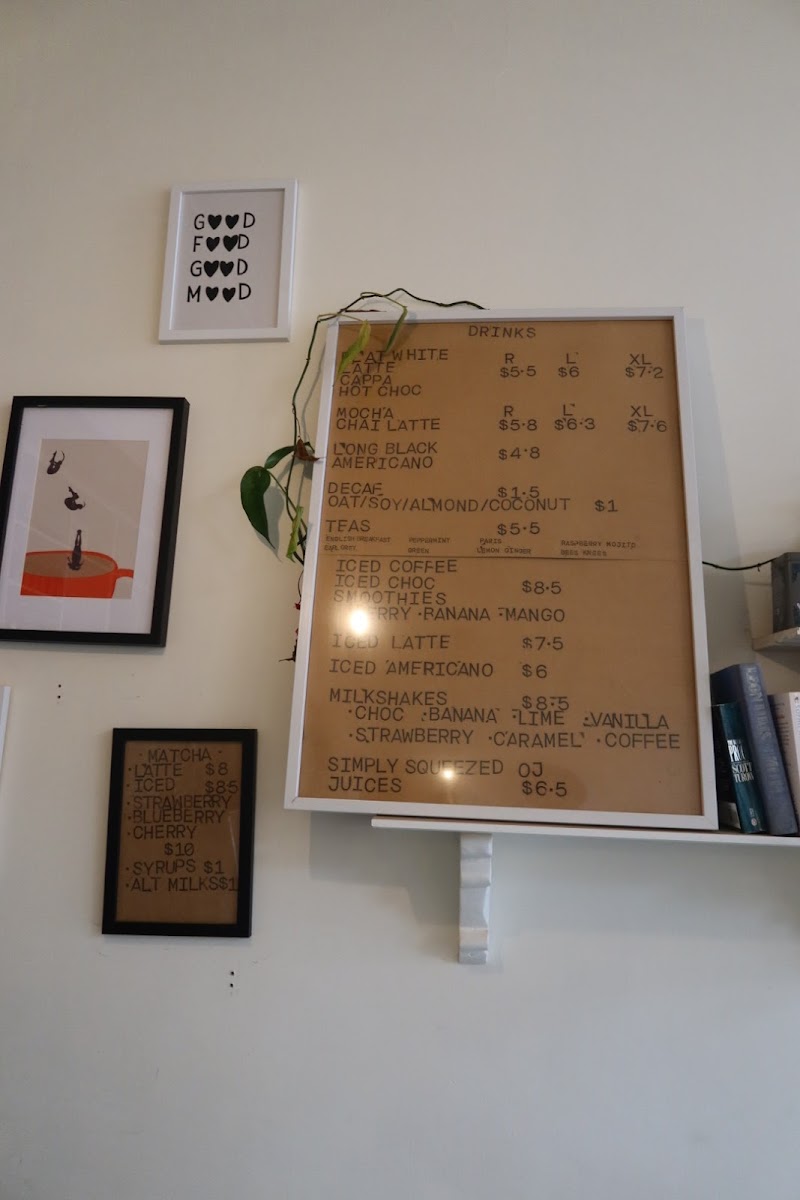 GOOD
FOOD
GOOD
MOOD
DRINKS
FLAT WHITE R L XL
LATTE $5.5 $6 $7.2
CAPPA
HOT CHOC
MOCHA R L XL
CHAI LATTE $5.8 $6.3 $7.6
LONG BLACK $4.8
AMERICANO
DECAF $1.5
OAT/SOY/ALMOND/COCONUT $1
TEAS $5.5
ENGLISH BREAKFAST PEPPERMINT PARIS RASPBERRY MOJITO
EARL GREY GREEN LEMON GINGER BEES KNEES
ICED COFFEE
ICED CHOC $8.5
SMOOTHIES
BERRY ·BANANA ·MANGO
ICED LATTE $7.5
ICED AMERICANO $6
MILKSHAKES $8.5
·CHOC ·BANANA ·LIME ·VANILLA
·STRAWBERRY ·CARAMEL ·COFFEE
SIMPLY SQUEEZED OJ
JUICES $6.5
·MATCHA·
·LATTE $8
·ICED $8.5
·STRAWBERRY
·BLUEBERRY
·CHERRY
$10
·SYRUPS $1
·ALT MILKS $1
SCOTT